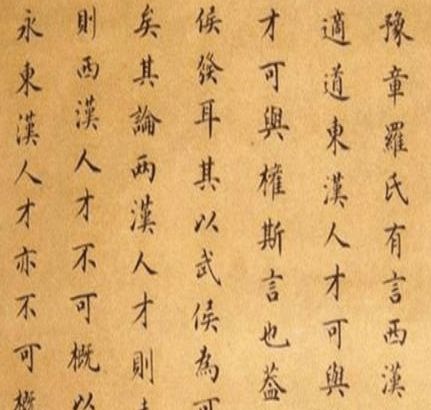 豫章羅氏有言西漢
適道東漢人才可與
才可與權斯言也蓋
侯發耳其以武侯為可
矣其論兩漢人才則
則西漢人才不可概以
永東漢人才亦不可概